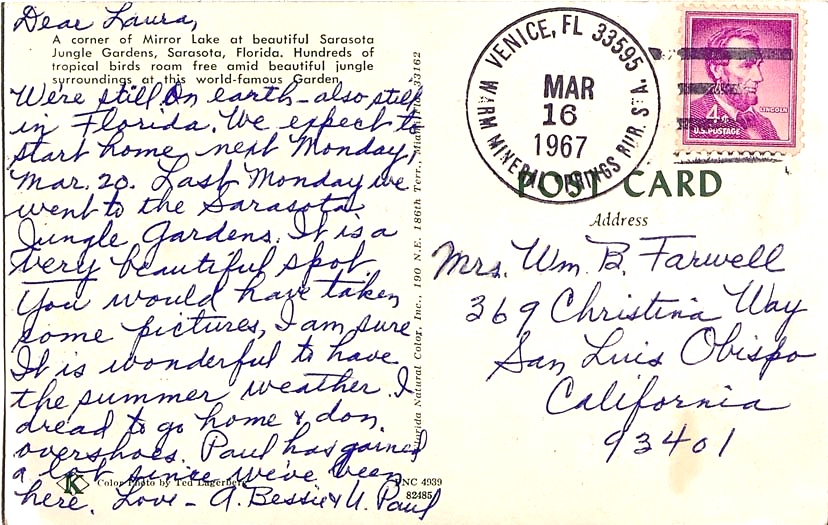 Dear Laura,
A corner of Mirror Lake at beautiful Sarasota
Jungle Gardens, Sarasota, Florida. Hundreds of
tropical birds roam free amid beautiful jungle
surroundings at this world-famous Garden.
We're still on earth - also still
in Florida. We expect to
start home next Monday,
Mar. 20. Last Monday we
went to the Sarasota
Jungle Gardens. It is a
very beautiful spot.
You would have taken
some pictures, I am sure
It is wonderful to have
the summer weather. I
dread to go home & don
overshoes. Paul has gained
a lot since we've been
here. Love - A. Bessie & U. Paul
K
Color Photo by Ted Lagerberg
FNC 4939
82485
Florida Natural Color, Inc., 190 N.E. 186th Terr. Miami, Fla. 33162
VENICE, FL 33595
WARM MINERAL SPRINGS RUR. STA.
MAR
16
1967
4¢
LINCOLN
U.S. POSTAGE
POST CARD
Address
Mrs. Wm. B. Farwell
369 Christina Way
San Luis Obispo
California
93401